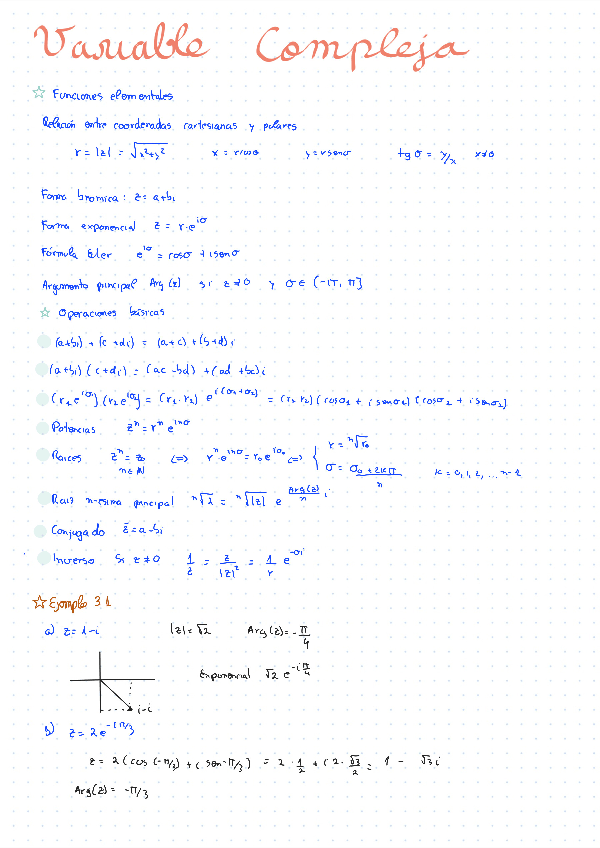 Variable Compleja
☆ Funciones elementales
Relación entre coordenadas cartesianas y polares
r = |z| = √(x²+y²)   x = r cos σ   y = r sen σ   tg σ = y/x   x≠0
Forma bromica: z = a+bi
Forma exponencial z = r·e^(iσ)
Fórmula Euler e^(iσ) = cos σ + i sen σ
Argumento principal Arg(z) si z≠0 y σ ∈ (-π, π]
☆ Operaciones básicas
(a+bi) + (c+di) = (a+c) + (b+d)i
(a+bi)(c+di) = (ac-bd) + (ad+bc)i
(r₁e^(iσ₁))(r₂e^(iσ₂)) = (r₁·r₂) e^(i(σ₁+σ₂)) = (r₁r₂)(cos σ₁ + i sen σ₁)(cos σ₂ + i sen σ₂)
Potencias zⁿ = rⁿ e^(inσ)
Raíces zⁿ = z₀ n∈ℕ ⟺ rⁿ·e^(inσ) = r₀e^(iσ₀) ⟺ { r = ⁿ√r₀
σ = (σ₀+2kπ)/n   k = 0,1,2, ... n-1
Raíz n-esima principal ⁿ√z = ⁿ√|z| e^((Arg(z)/n) i)
Conjugado z̄ = a-bi
Inverso Si z≠0 1/z = z̄/|z|² = 1/r e^(-σi)
☆ Ejemplo 3.1
a) z = 1-i   |z| = √2   Arg(z) = -π/4
Exponencial √2 e^(-iπ/4)
1-i
b) z = 2e^(-iπ/3)
z = 2(cos(-π/3) + i sen-π/3) = 2·1/2 + i2·√3/2 = 1 - √3i
Arg(z) = -π/3